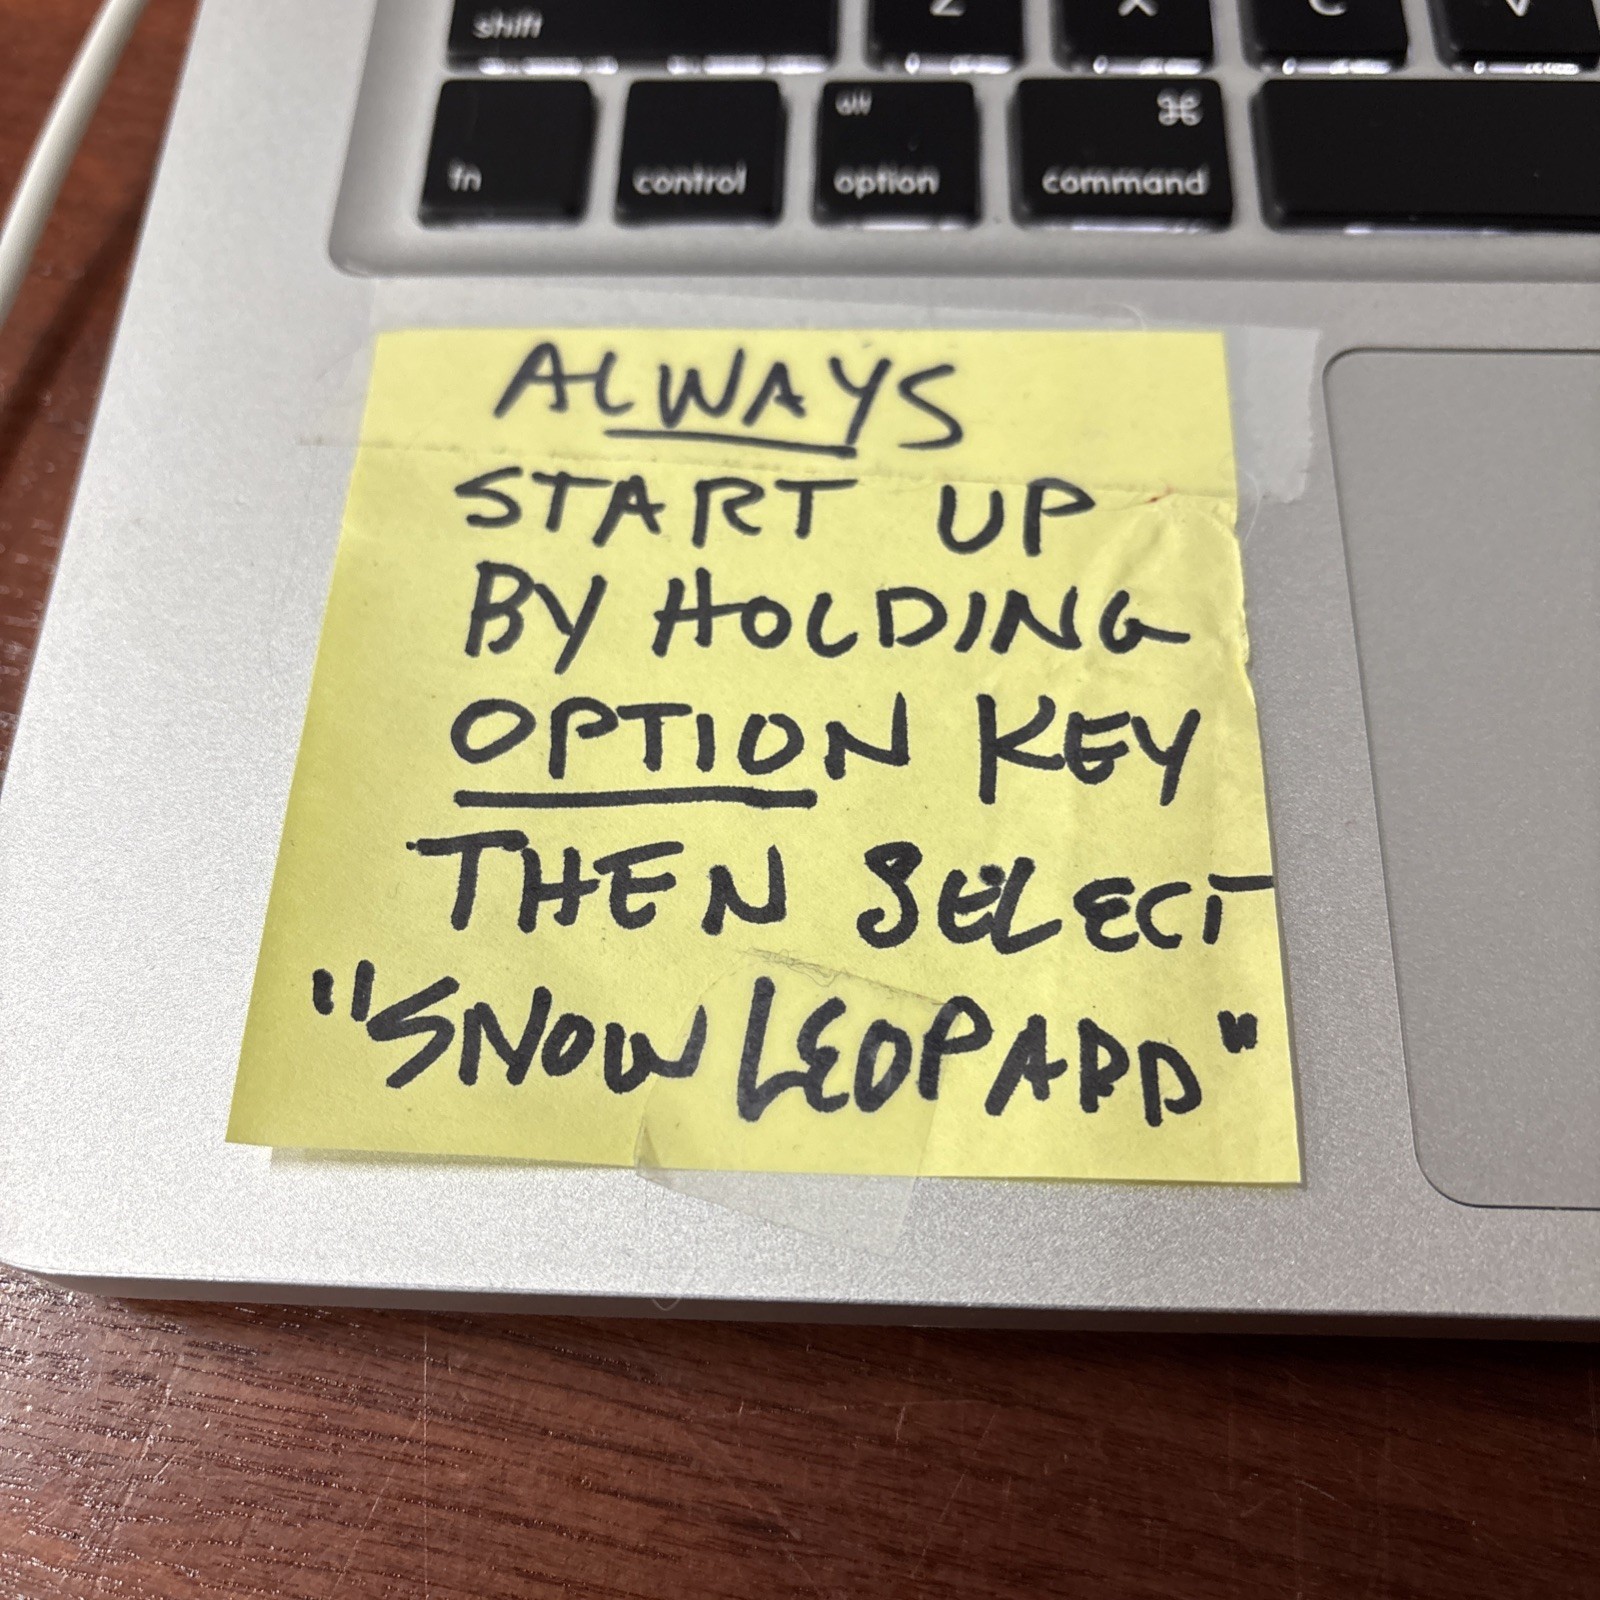 shift Z X C V
alt ⌘
fn control option command
ALWAYS
START UP
BY HOLDING
OPTION KEY
THEN SELECT
"SNOW LEOPARD"